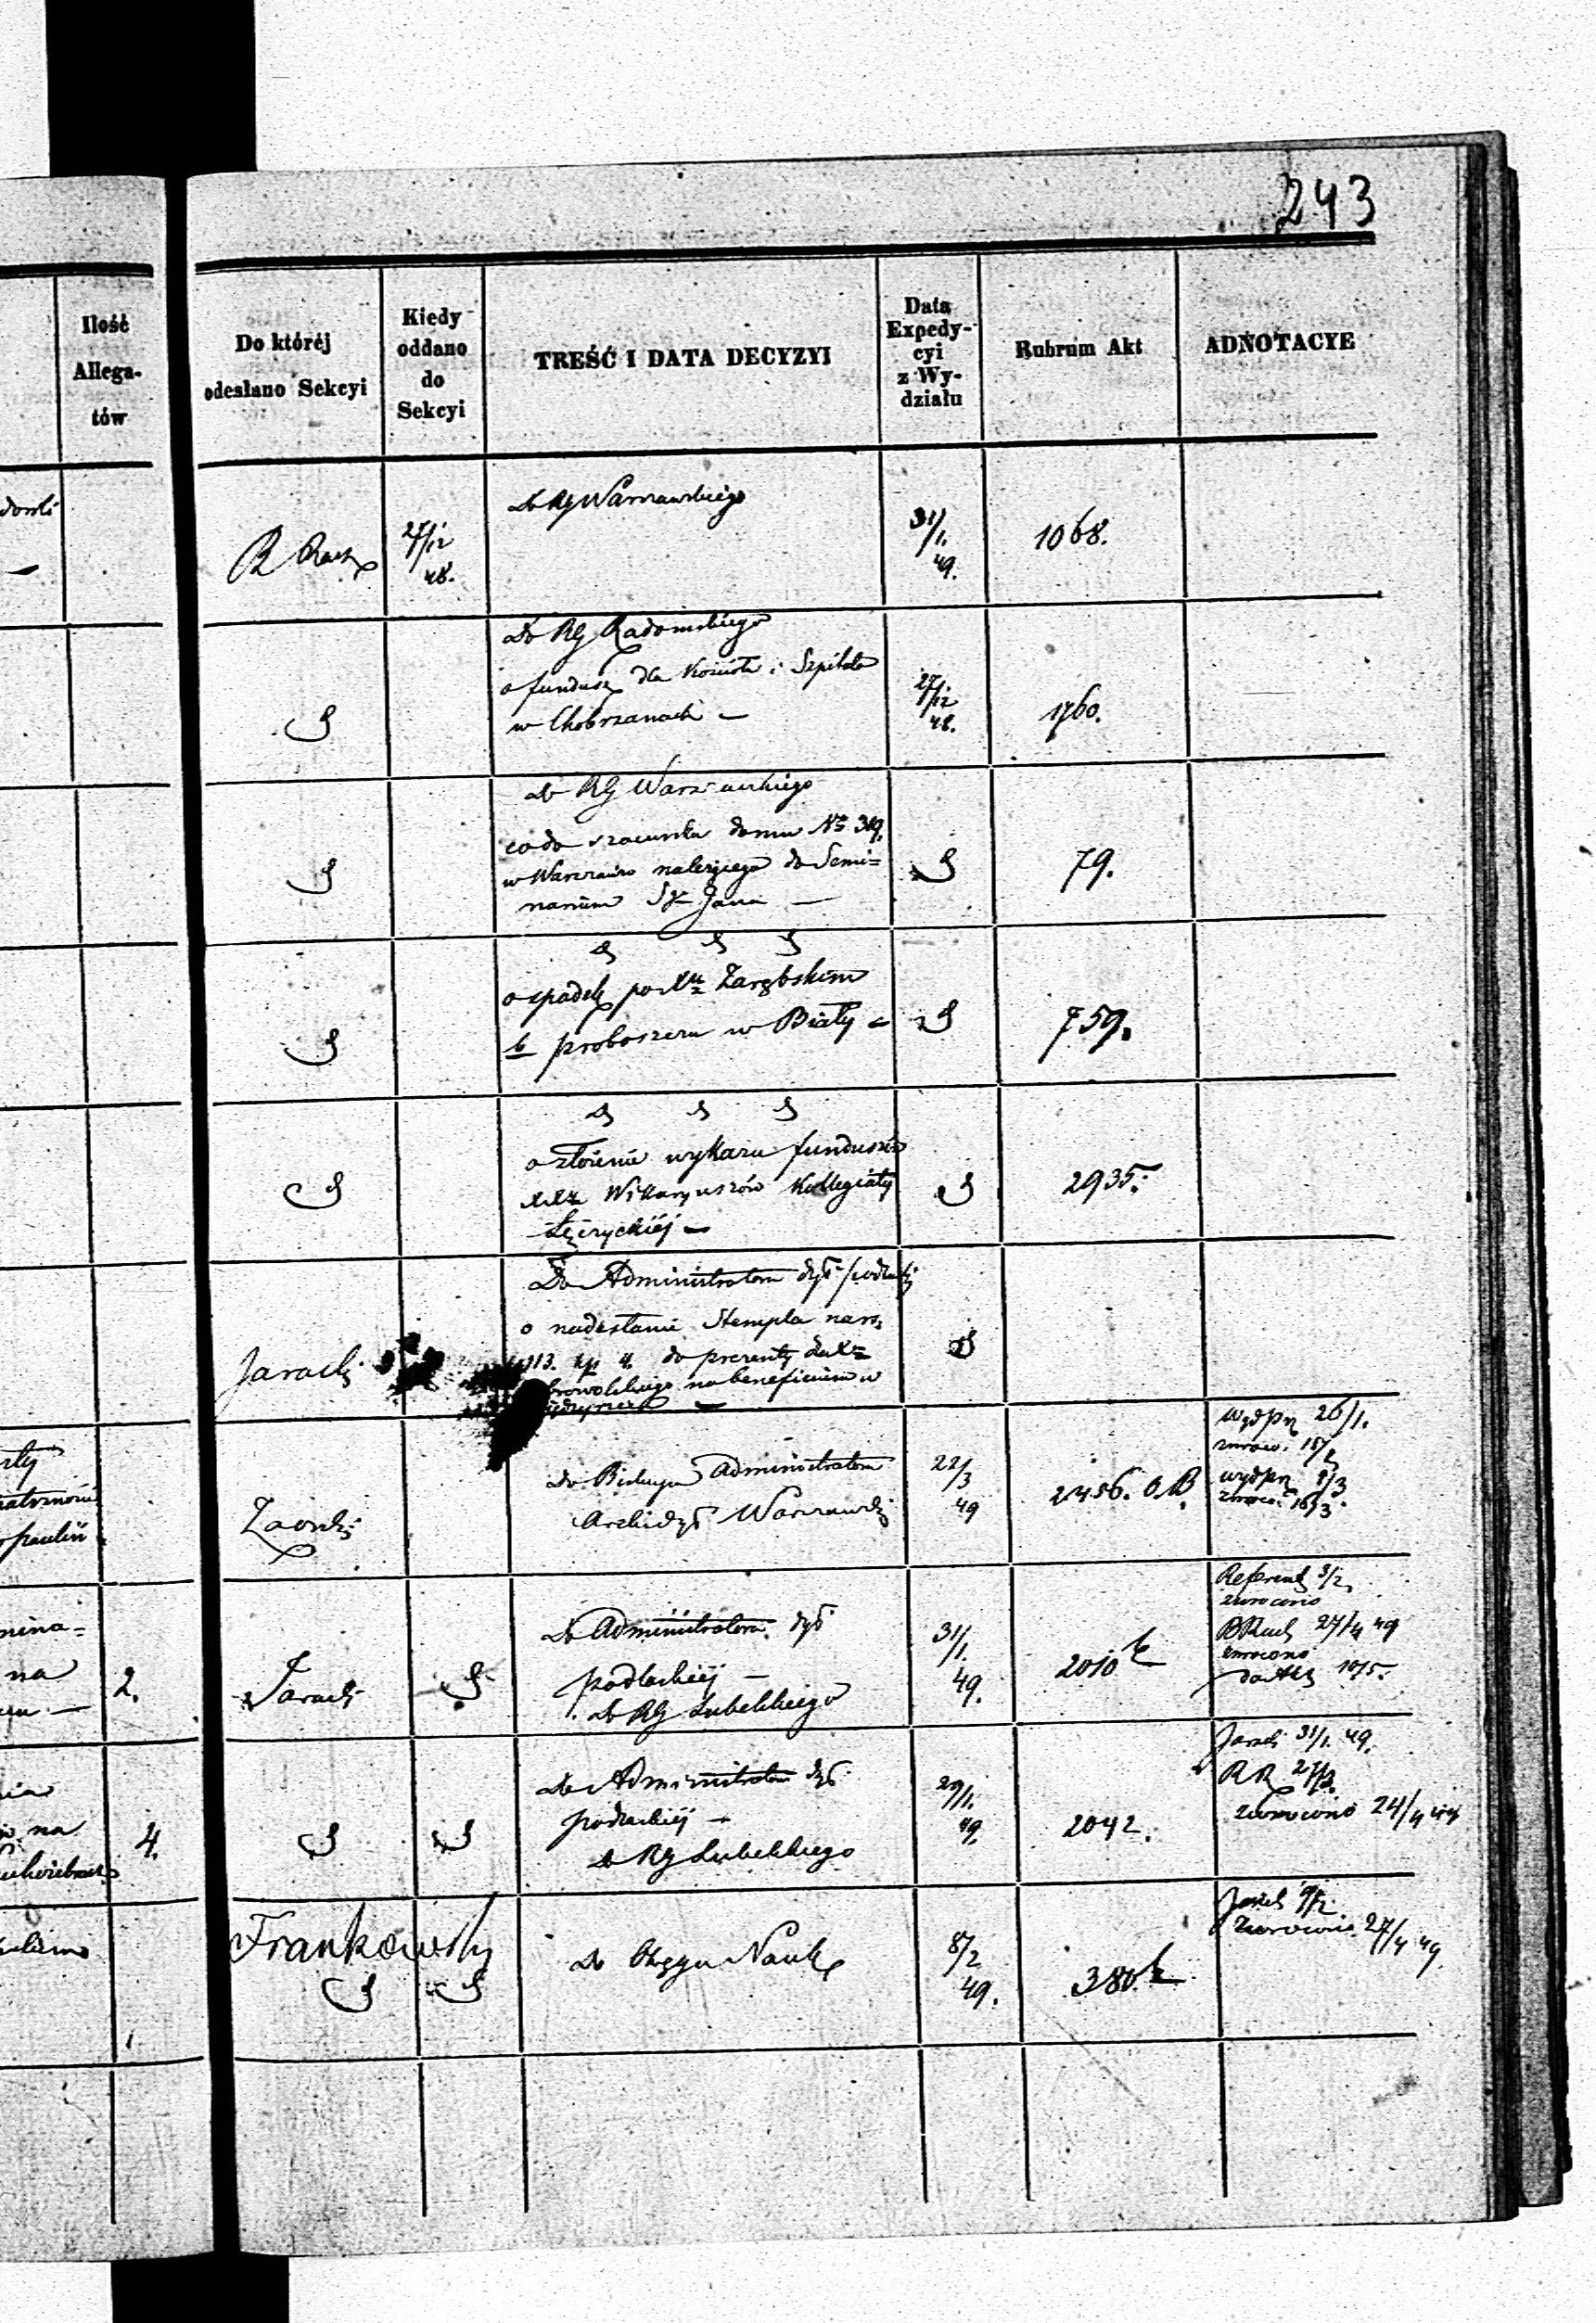 243
Ilość
Allega-
tów
Do któréj
odesłano Sekcyi
Kiedy
oddano
do
Sekcyi
TREŚĆ I DATA DECYZYI
Data
Expedy-
cyi
z Wy-
działu
Rubrum Akt
ADNOTACYE
27/12
48.
Do RG Warszawskiego
31/1.
49.
1068.
Do RG Radomskiego
o fundusz dla Kościoła i Szpitala
w Chobrzanach —
27/12
48.
1760.
Do RG Warszawskiego
co do szacunku domu No 319.
w Warszawie należącego do Semi=
narium Sgo Jana —
79.
o spadek po Xu Zarębskim
b proboszczu w Biały
759.
o złożenie wykazu funduszów
XXy Wikaryuszów Kollegiaty
Łęczyckiéj —
2935.
Jaracki
Do Administratora dył podlaskiéj
o nadesłanie Stempla na rs.
113. kp 4. do prezenty dla Xa
na beneficium w
Do Biskupa Administratora
Archidył Warszawskiéj
22/3
49
2456. O.B.
26/1.
2.
Jaracki
Do Administratora dył
podlaskiéj —
Do RG Lubelskiego
31/1.
49.
2010 b
Referent 3/2
zwrocono
27/4 49
zwrocono
do Akt 10/5.
na
4.
Do Administratora dył
podlaskiéj —
Do RG Lubelskiego
29/1.
49.
2042.
Jaracki 31/1. 49.
zwrocono 24/4
Frankowski
Do Okręgu Nauk
8/2
49.
380. b
zwrocono 27/4 49